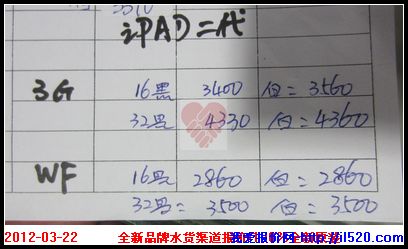 iPAD二代
3G 16黑 3400 白=3560
32黑 4330 白=4360
WF 16黑 2860 白=2860
32黑=3500 白=3500
2012-03-22 全新品牌水货渠道报